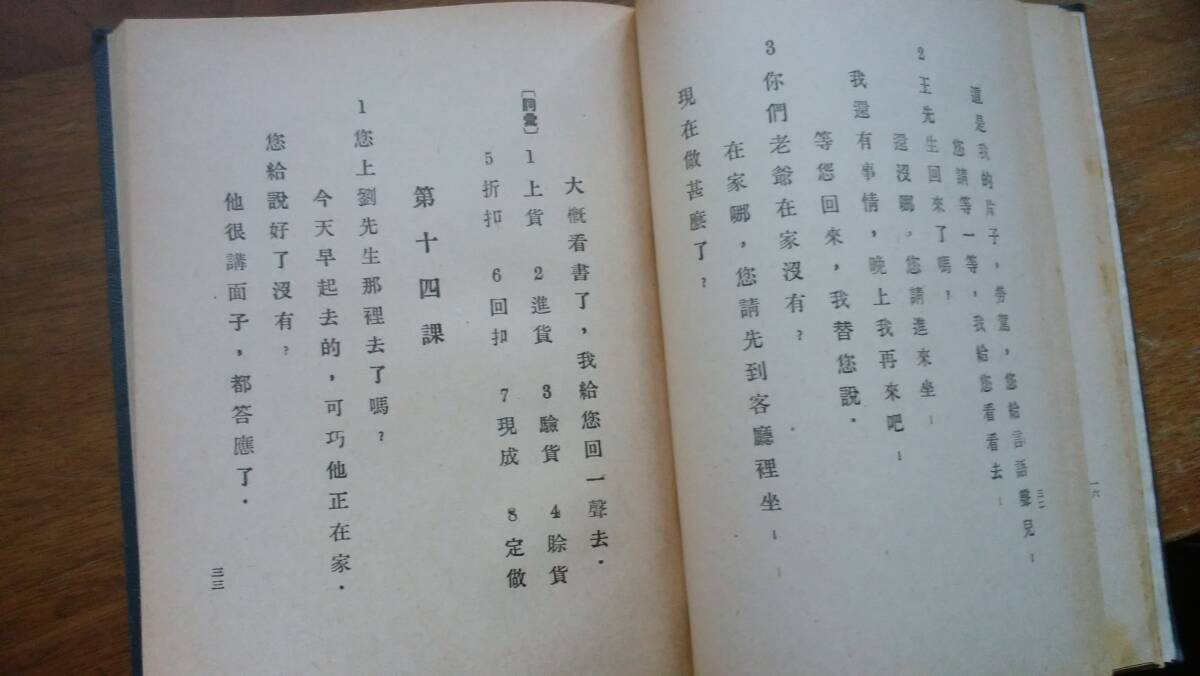 這是我的片子，勞駕，您給言語聲兒！
您請等一等，我給您看看去！
2 王先生回來了嗎？
還沒哪，您請進來坐！
我還有事情，晚上我再來吧！
等您回來，我替您說．
3 你們老爺在家沒有？
在家哪，您請先到客廳裡坐！
現在做甚麼了？
三二
一六
大概看書了，我給您回一聲去．
〔詞彙〕 1 上貨 2 進貨 3 驗貨 4 賒貨
5 折扣 6 回扣 7 現成 8 定做
第十四課
1 您上劉先生那裡去了嗎？
今天早起去的，可巧他正在家．
您給說好了沒有？
他很講面子，都答應了．
三三